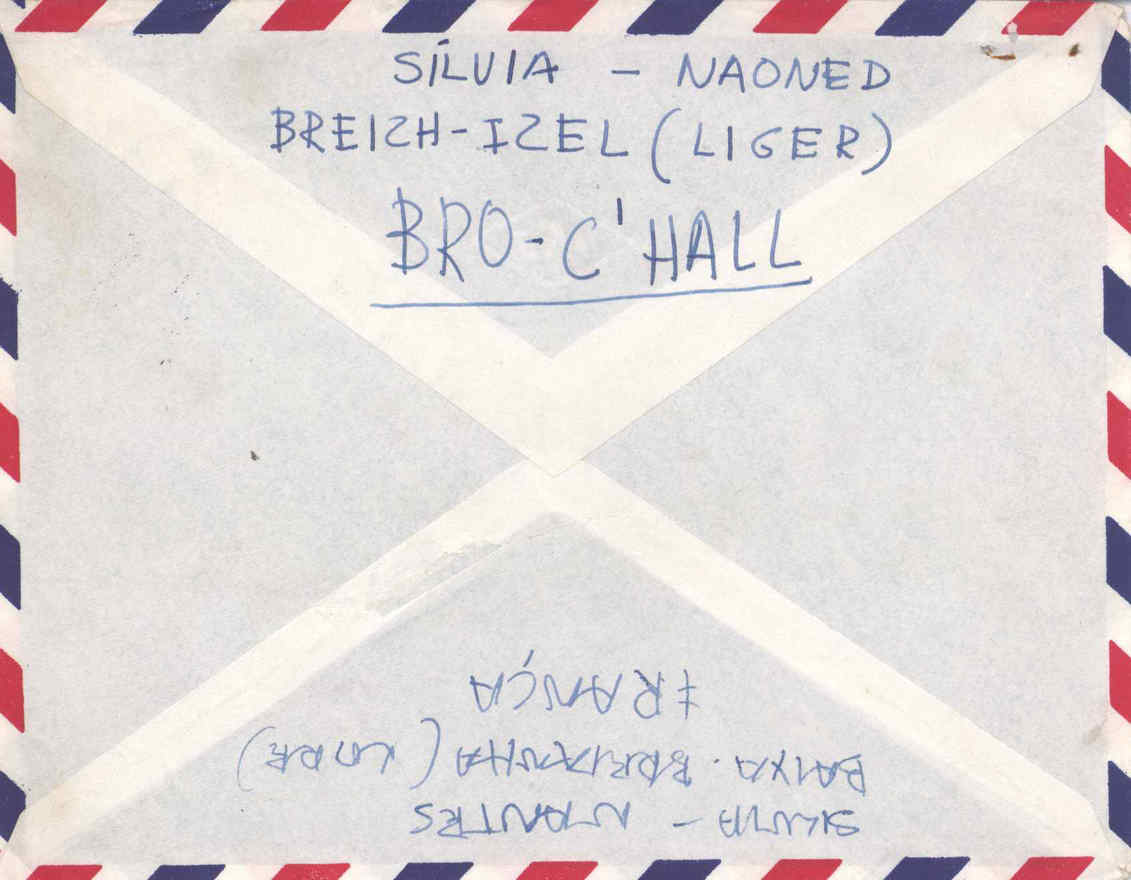 SÍLVIA – NAONED
BREIZH-IZEL (LIGER)
BRO-C'HALL
SILVIA – NANTES
BAIXA. BRETANHA (LOIRE)
FRANÇA